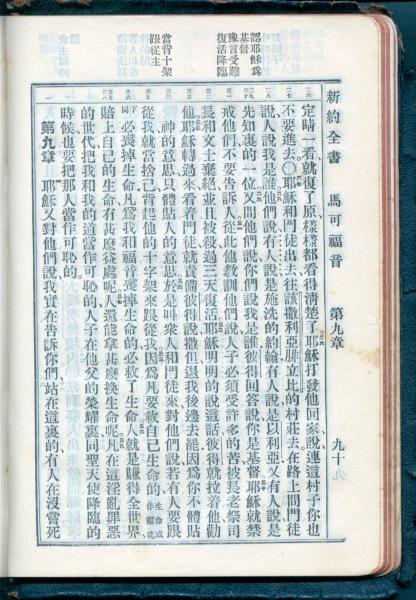 新約全書 馬可福音 第九章 九十九
認耶穌爲
基督
豫言受難
復活降臨
當背十架
跟從主
定睛一看就復了原樣樣都看得清楚了耶穌打發他回家說連這村子你也
不要進去○耶穌和門徒出去往該撒利亞腓立比的村莊去在路上問門徒
說人說我是誰他們說有人說是施洗的約翰有人說是以利亞又有人說是
先知裏的一位又問他們說你們說我是誰彼得回答說你是基督耶穌就禁
戒他們不要告訴人從此他教訓他們說人子必須受許多的苦被長老祭司
長和文士棄絕並且被殺過三天復活耶穌明明的說這話彼得就拉着他勸
他耶穌轉過來看着門徒就責備彼得說撒但退我後邊去罷因爲你不體貼
神的意思只體貼人的意思於是叫衆人和門徒來對他們說若有人要跟
從我就當捨己背起他的十字架來跟從我因爲凡要救自己生命的生命或作靈魂
下同必喪掉生命凡爲我和福音喪掉生命的必救了生命人就是賺得全世界
賠上自己的生命有甚麼益處呢人還能拿甚麼換生命呢凡在這淫亂罪惡
的世代把我和我的道當作可恥的人子在他父的榮耀裏同聖天使降臨的
時候也要把那人當作可恥的
第九章 耶穌又對他們說我實在告訴你們站在這裏的有人在沒嘗死